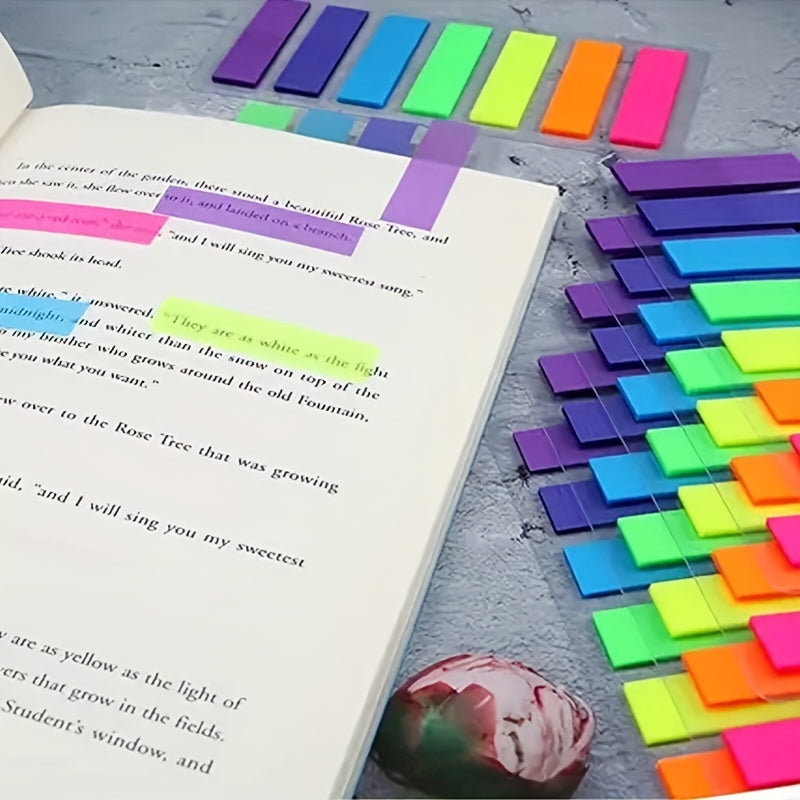 In the center of the garden, there stood a beautiful Rose Tree, and
she saw it, she flew over to it, and landed on a branch.
"and I will sing you my sweetest song."
Tree shook its head.
white," it answered. "They are as white as the light
midnight, and whiter than the snow on top of the
my brother who grows around the old Fountain,
you what you want."
over to the Rose Tree that was growing
"and I will sing you my sweetest
are as yellow as the light of
that grow in the fields.
Student's window, and